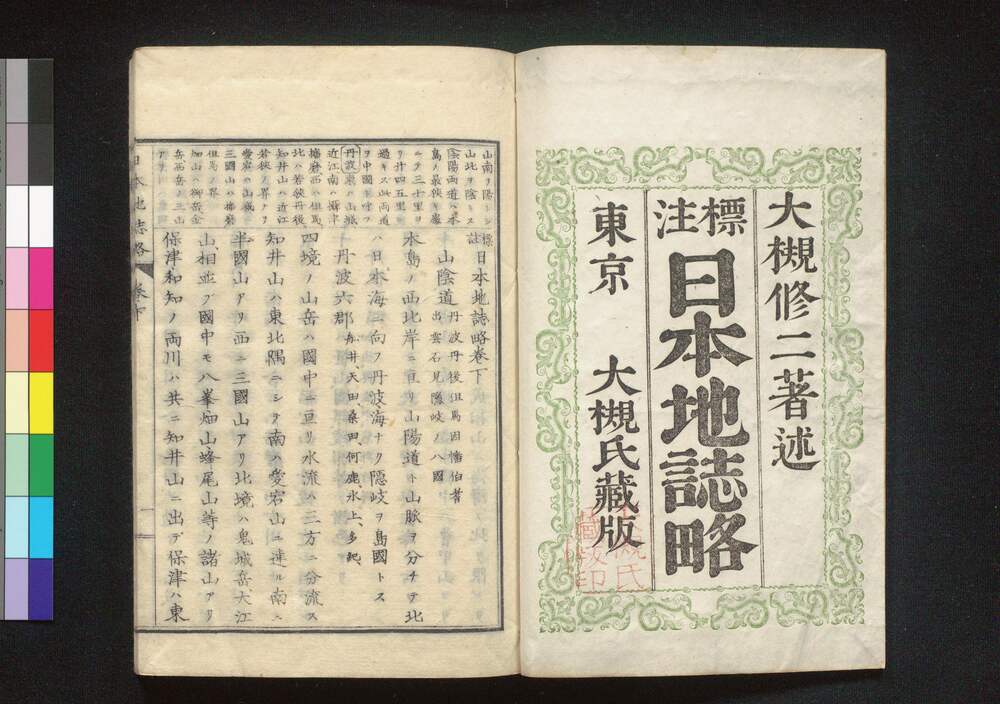 大槻修二著述
標注
日本地誌略
東京 大槻氏藏版
大槻氏藏版印
山南ヲ陽トシ
山北ヲ陰トス
陰陽両道ハ本
島ノ最狭キ處
ニテ三十里ヨ
リ廿四五里ニ
過キス此両道
ヲ中國ト呼フ
丹波東ハ山城
近江南ハ攝津
播磨西ハ但馬
北ハ若狭丹後
知井山ハ近江
若狭ノ界ナリ
愛宕ハ山城
三國山ハ播磨
但馬ノ界
畑山ハ御岳金
岳西岳ノ三山
アリ
標註日本地誌略巻下
山陰道 丹波丹後但馬因幡伯耆
出雲石見隠岐ノ八國
本島ノ西北岸ニ亘リ山陽道ト山脈ヲ分チテ北
ハ日本海ニ向フ丹波海ナク隠岐ヲ島國トス
丹波六郡 舟井、天田、桑田、何鹿、氷上、多紀、
四境ノ山岳ハ國中ニ亘リ水流ハ三方ニ分流ス
知井山ハ東北隅ニシテ南ハ愛宕山ニ連ル南ニ
半國山アリ西ニ三國山アリ北境ハ鬼城岳大江
山相並ブ國中モ八峯畑山蜂尾山等ノ諸山アリ
保津和知ノ両川ハ共ニ知井山ニ出デ保津ハ東
日本地誌略 巻下 一